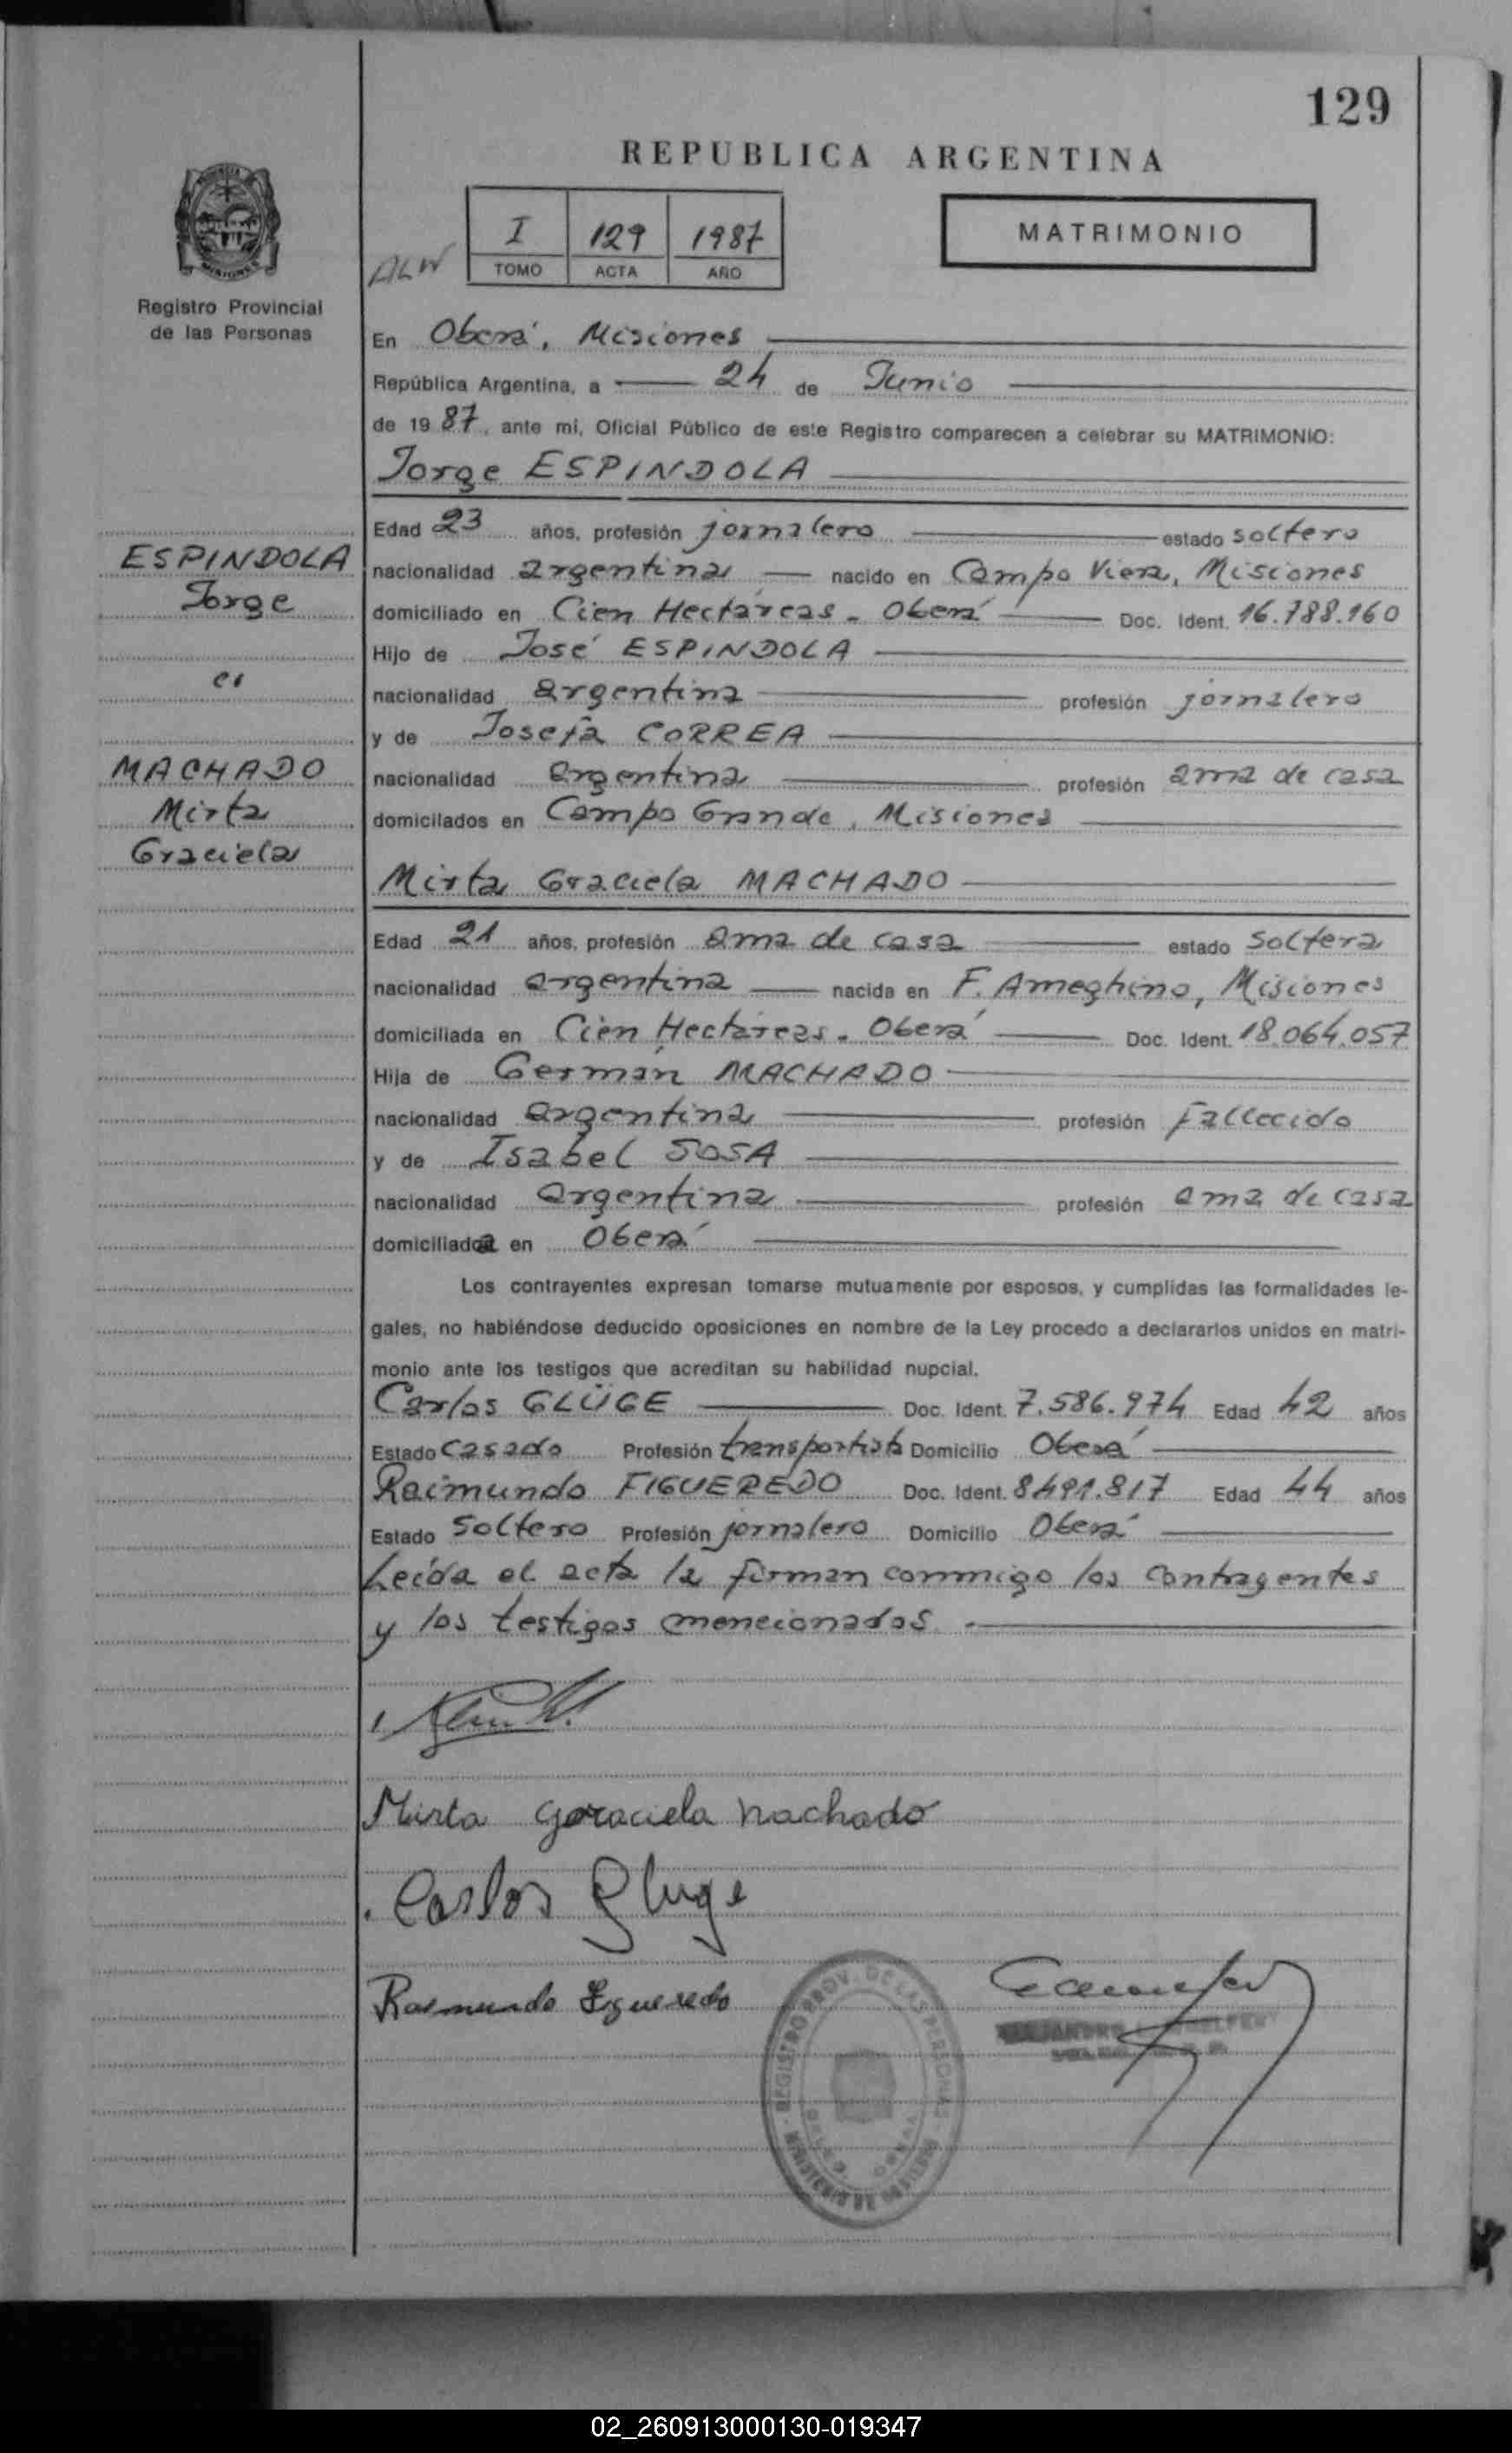 129
REPUBLICA ARGENTINA
I 129 1987
TOMO ACTA AÑO
MATRIMONIO
ALW
Registro Provincial
de las Personas
En Oberá, Misiones
República Argentina, a 24 de Junio
de 1987, ante mi, Oficial Público de este Registro comparecen a celebrar su MATRIMONIO:
Jorge ESPINDOLA
Edad 23 años, profesión jornalero estado soltero
ESPINDOLA
nacionalidad argentina nacido en Campo Viera, Misiones
Jorge
domiciliado en Cien Hectáreas - Oberá Doc. Ident. 16.788.160
Hijo de José ESPINDOLA
c/
nacionalidad argentina profesión jornalero
y de Josefa CORREA
MACHADO
nacionalidad argentina profesión ama de casa
Mirta
domicilados en Campo Grande, Misiones
Graciela
Mirta Graciela MACHADO
Edad 21 años, profesión ama de casa estado soltera
nacionalidad argentina nacida en F. Ameghino, Misiones
domiciliada en Cien Hectáreas - Oberá Doc. Ident. 18.064.057
Hija de Germán MACHADO
nacionalidad argentina profesión fallecido
y de Isabel SOSA
nacionalidad argentina profesión ama de casa
domiciliada en Oberá
Los contrayentes expresan tomarse mutuamente por esposos, y cumplidas las formalidades le-
gales, no habiéndose deducido oposiciones en nombre de la Ley procedo a declararlos unidos en matri-
monio ante los testigos que acreditan su habilidad nupcial.
Carlos GLÜGE Doc. Ident. 7.586.974 Edad 42 años
Estado casado Profesión transportista Domicilio Oberá
Raimundo FIGUEREDO Doc. Ident. 8491.817 Edad 44 años
Estado soltero Profesión jornalero Domicilio Oberá
Leída el acta la firman conmigo los contragentes
y los testigos mencionados.
Mirta Graciela Machado
Carlos Gluge
Raimundo Figueredo
REGISTRO PROV. DE LAS PERSONAS
MINISTERIO DE GOBIERNO
02_260913000130-019347